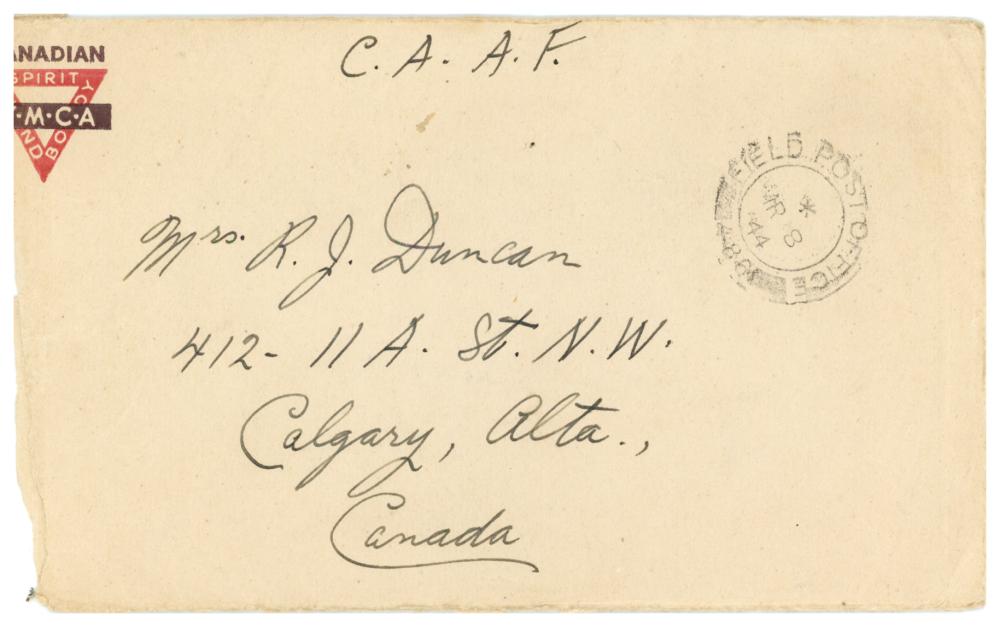 C. A. A. F.
ANADIAN
SPIRIT
M·C·A
BODY
ND
FIELD POST OFFICE
*
8
44
Mrs. R. J. Duncan
412- 11 A. St. N. W.
Calgary, Alta.,
Canada